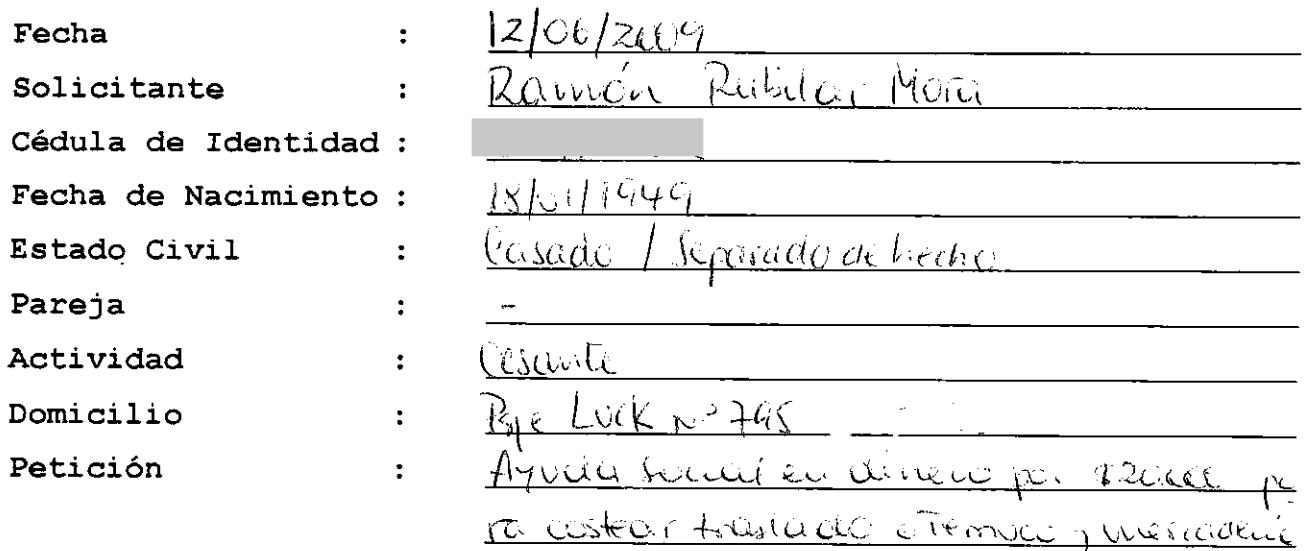 Fecha : 12/06/2009
Solicitante : Ramón Rubilar Mora
Cédula de Identidad :
Fecha de Nacimiento : 18/01/1949
Estado Civil : Casado / Separado de hecho
Pareja : -
Actividad : Cesante
Domicilio : Psje Luck N° 795
Petición : Ayuda social en dinero por $20000 pa
ra costear traslado a Temuco y mercadería